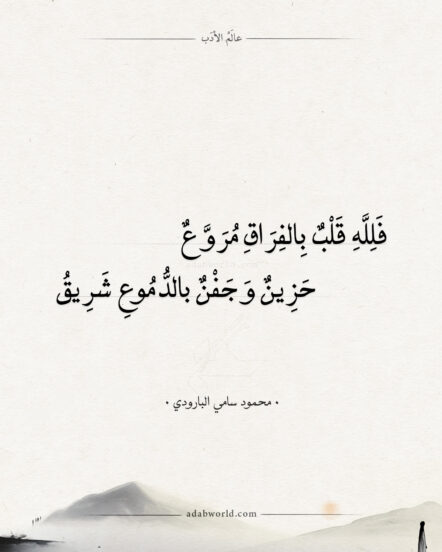 عالَمُ الأدَب
فَلِلَّهِ قَلْبٌ بِالفِرَاقِ مُرَوَّعٌ
حَزِينٌ وَجَفْنٌ بالدُّمُوعِ شَرِيقُ
• محمود سامي البارودي •
adabworld.com